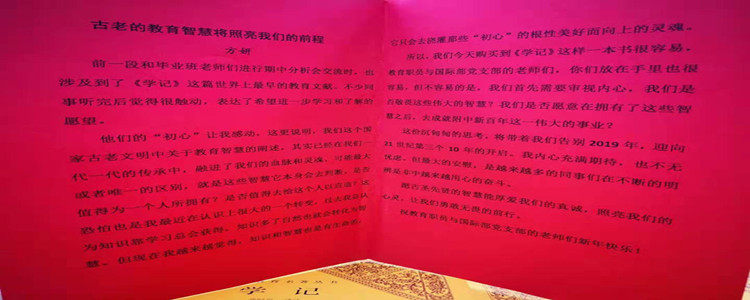 古老的教育智慧将照亮我们的前程
方妍
前一段和毕业班老师们进行期中分析会交流时，也
涉及到了《学记》这篇世界上最早的教育文献。不少同
事听完后觉得很触动，表达了希望进一步学习和了解的
愿望。
他们的“初心”让我感动。这更说明，我们这个国
家古老文明中关于教育智慧的阐述，其实已经在我们一
代一代的传承中，融进了我们的血脉和灵魂。可能最大
或者唯一的区别，就是这些智慧它本身会去判断，是否
值得为一个人所拥有？是否值得去给这个人以启迪？这
恐怕也是我最近在认识上很大的一个转变。过去我总认
为知识靠学习总会获得，知识多了自然也就会转化为智
慧。但现在我越来越觉得，知识和智慧也是有生命的，
它只会去浇灌那些“初心”的根性美好而向上的灵魂。
所以，我们今天购买到《学记》这样一本书很容易。
教育职员与国际部党支部的老师们，你们放在手里也很
容易。但不容易的是，我们首先需要审视内心，我们是
否敬畏这些伟大的智慧？我们是否愿意在拥有了这些智
慧之后，去成就附中新百年这一伟大的事业？
这份沉甸甸的思考，将带着我们告别 2019 年，迎向
21 世纪第三个 10 年的开启。我内心充满期待，也不无
忧虑。但最大的安慰，是越来越多的同事们在不断的明
辨是非中越来越用心的奋斗。
愿古圣先贤的智慧能厚爱我们的真诚，照亮我们的
心灵，让我们勇敢无畏的前行。
祝教育职员与国际部党支部的老师们新年快乐！
学 记